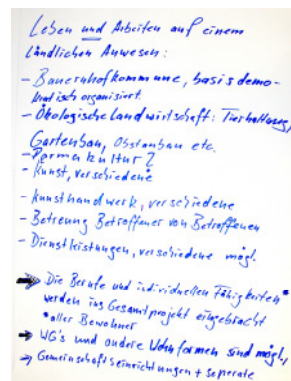 Leben und Arbeiten auf einem
Ländlichen Anwesen:
- Bauernhofkommune, basisdemo-
kratisch organisiert
- Ökologische Landwirtschaft: Tierhaltung,
Gartenbau, Obstanbau etc.
- Permakultur?
- Kunst, verschiedene
- Kunsthandwerk, verschiedene
- Betreuung Betroffener von Betroffenen
- Dienstleistungen, verschiedene mögl.
⇒ Die Berufe und individuellen Fähigkeiten*
werden ins Gesamtprojekt eingebracht
*aller Bewohner
→ WG's und andere Wohnformen sind mögl.
→ Gemeinschaftseinrichtungen + seperate